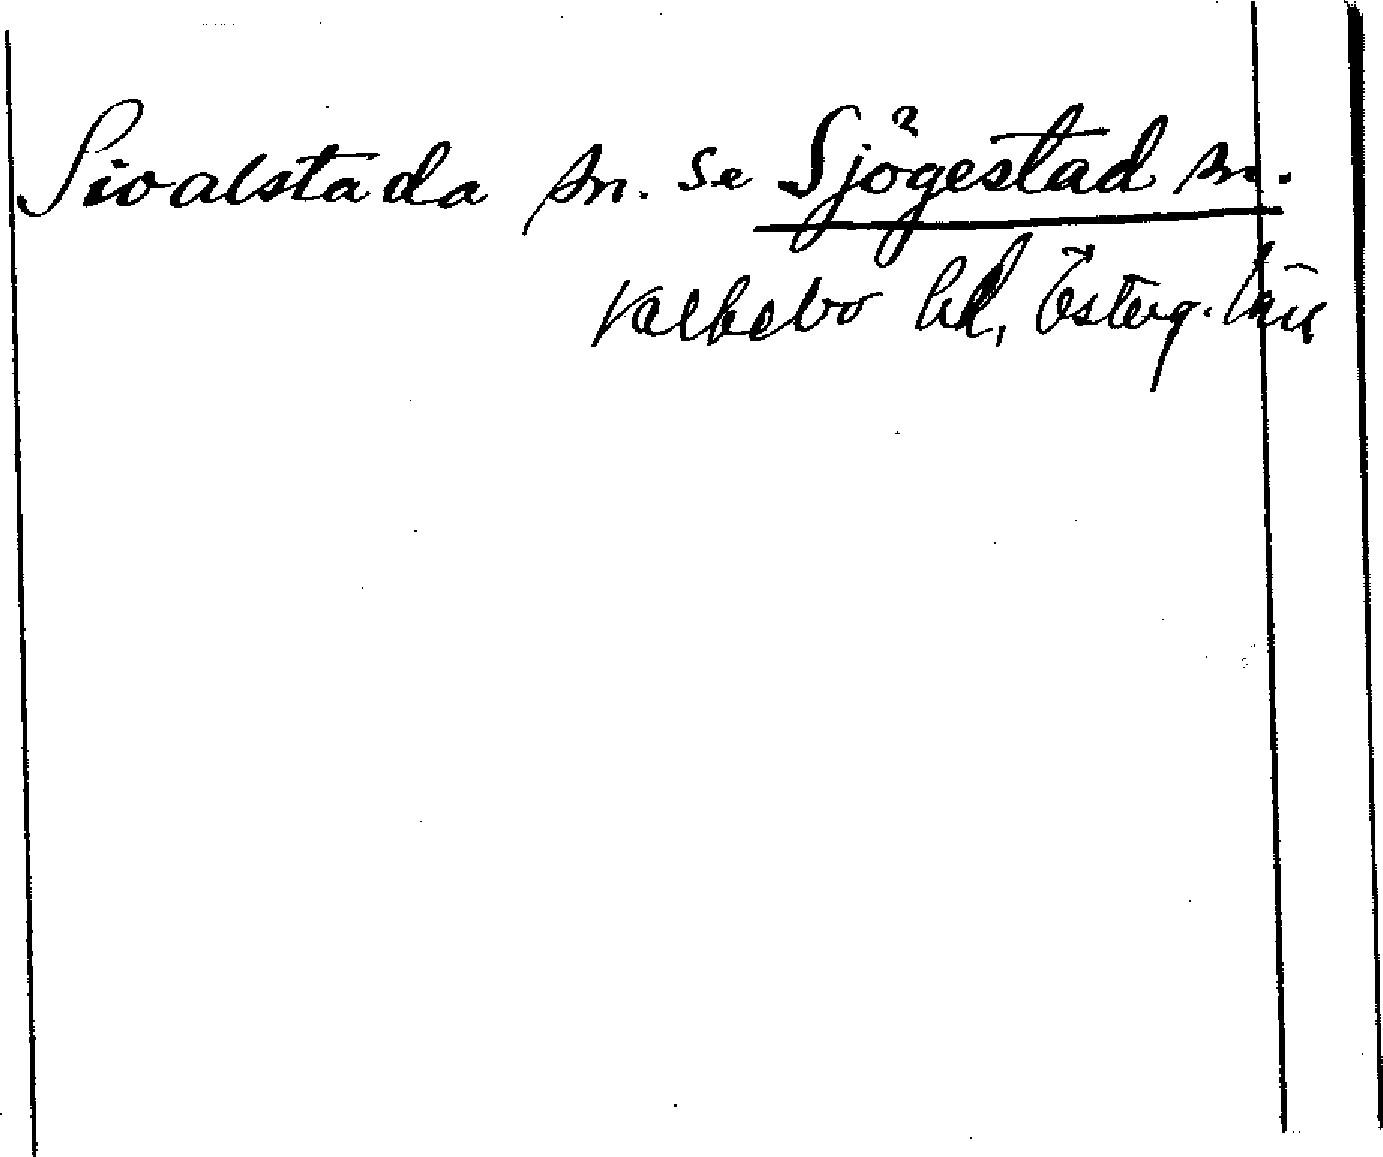 Sioalstada sn. se Sjögestad sn.
Valkebo hd, Österg. län